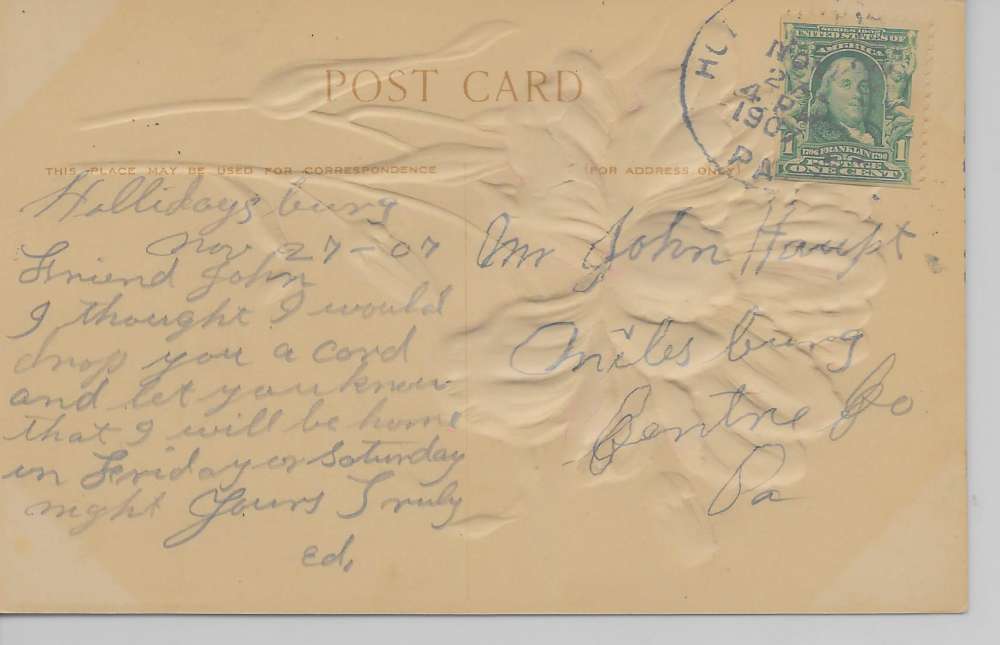 POST CARD
THIS PLACE MAY BE USED FOR CORRESPONDENCE
(FOR ADDRESS ONLY)
SERIES 1902
UNITED STATES OF
AMERICA
1706 FRANKLIN 1790
POSTAGE
1 1
ONE CENT
4 P
190
PA
Hollidaysburg
Nov 27-07
Friend John
I thought I would
drop you a cord
and let you know
that I will be home
in Friday or Saturday
night Yours Truly
Ed,
Mr John Haupt
Milesburg
Centre Co
Pa